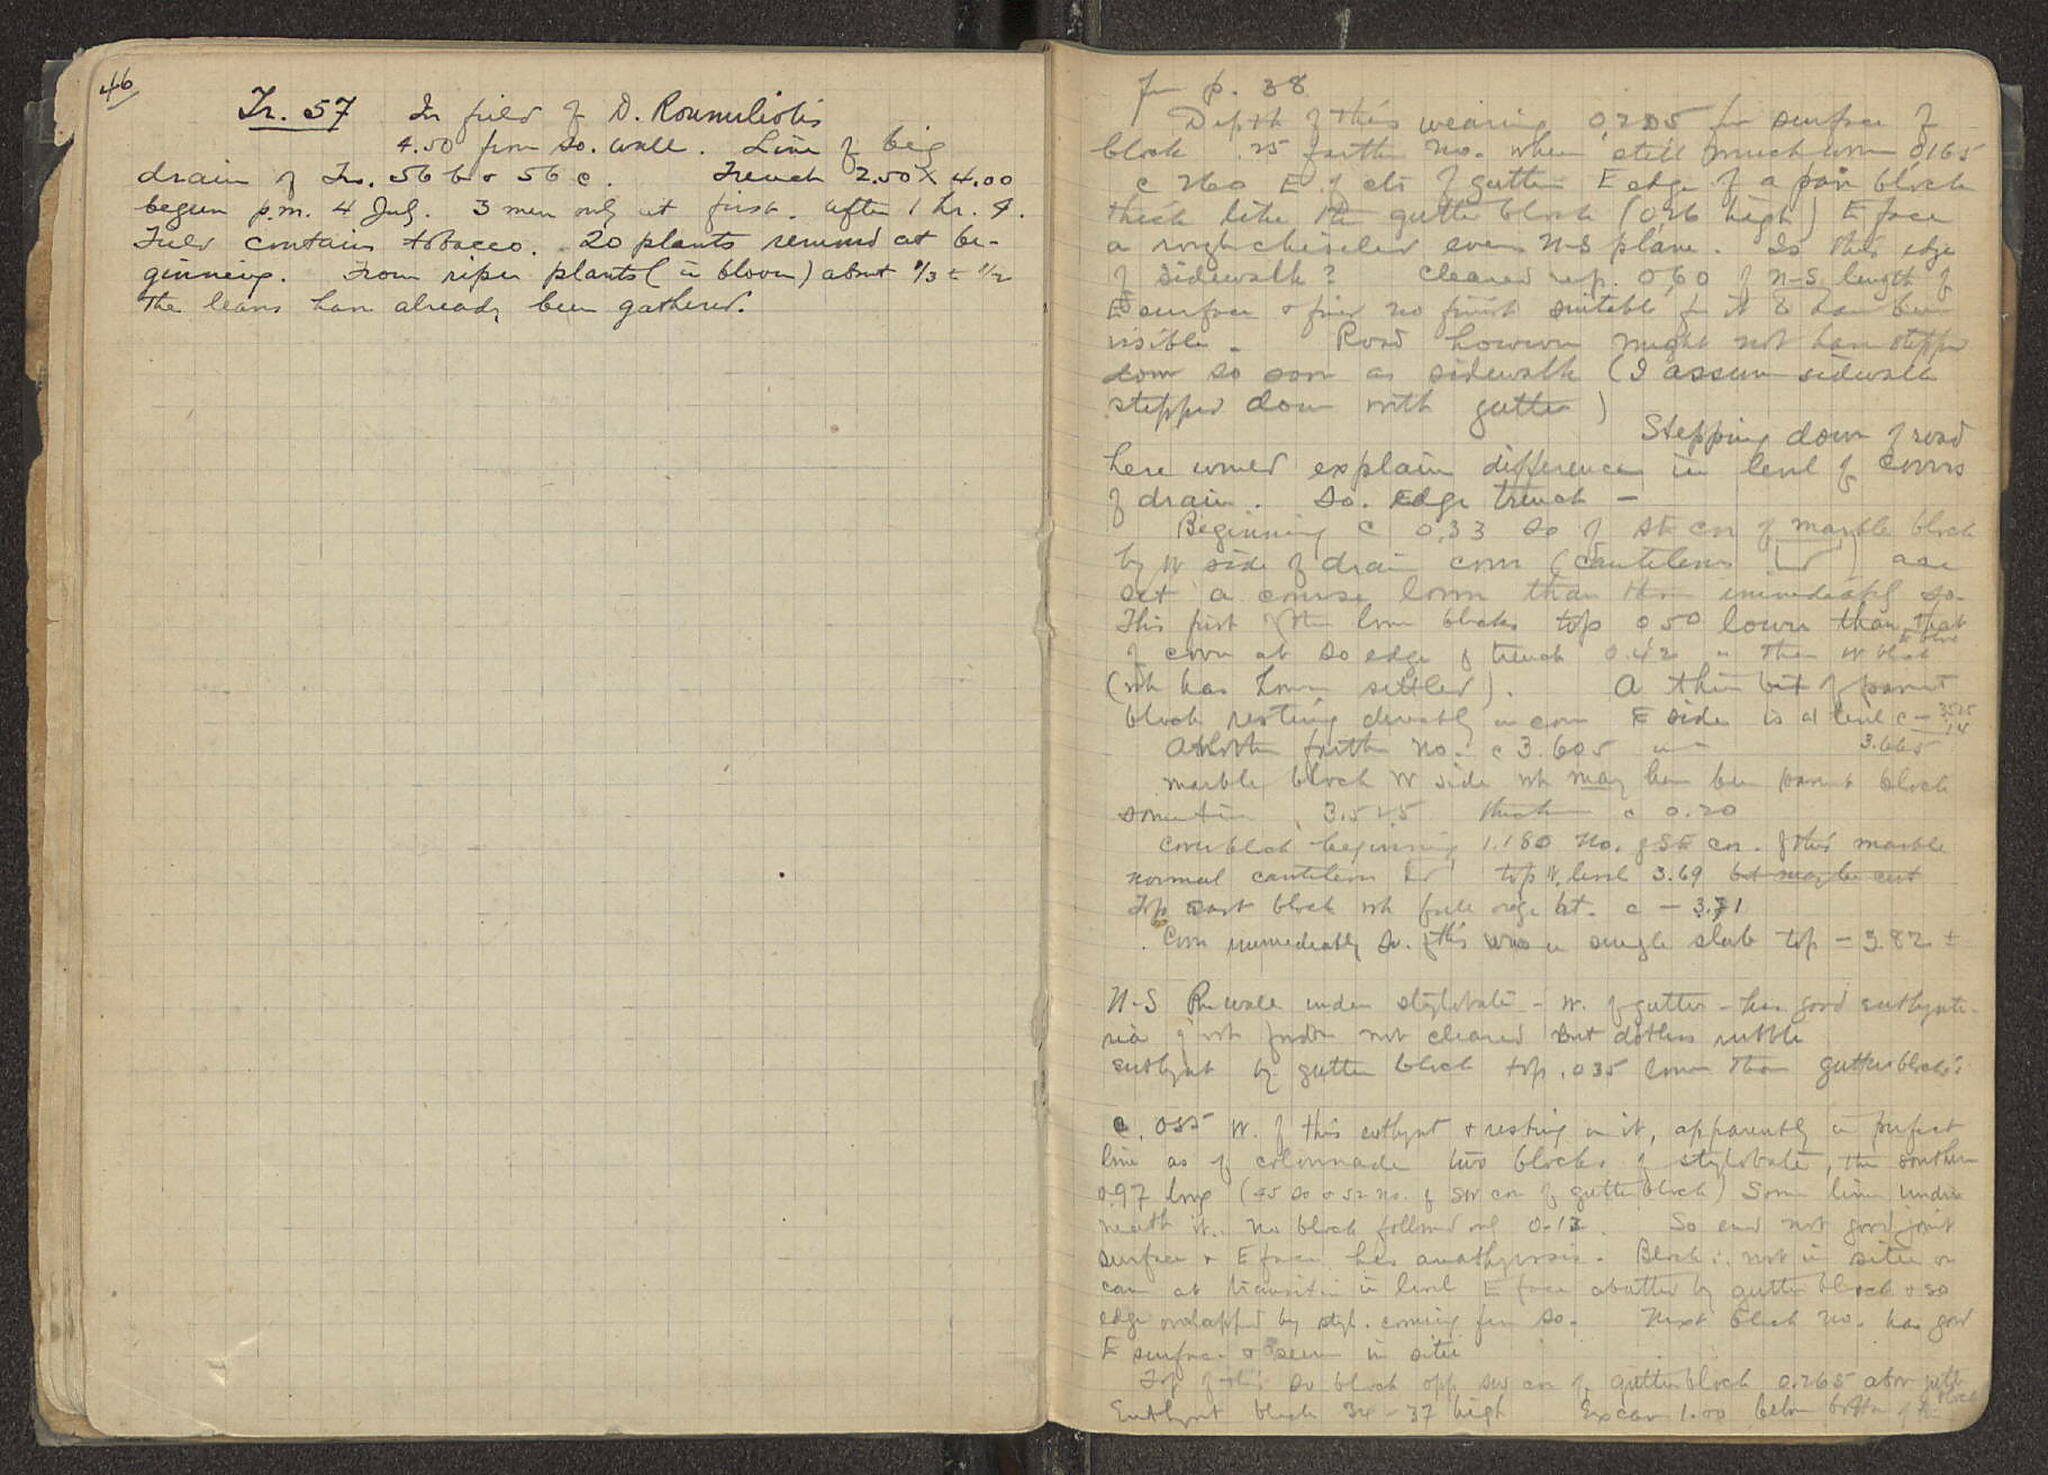 46
Tr. 57 In field of D. Roumeliotis
4.50 from So. wall. Line of big
drain of Trs. 56 b & 56 c. Trench 2.50 X 4.00
begun p.m. 4 July. 3 men only at first. after 1 hr. 4.
Field contains tobacco. 20 plants removed at be-
ginning. From riper plants (in bloom) about 1/3 ± 1/2
the leaves have already been gathered.
fm p. 38
Depth of this wearing fm surface of
block .25 farther No. where still much worn 0,165
c E of of gutter E edge of a block
thick like the gutter block (0,26 high) E face
a rough chiseled even N-S plane. Is this edge
of sidewalk? Cleared up. 0,60 of N-S length of
E surface & find no finish suitable for it to have been
visible - Road however might not have stepped
down so soon as sidewalk (I assume sidewalk
stepped down with gutter)
Stepping down of road
here would explain difference in level of covers
of drain. So. Edge trench -
Beginning c 0,33 So of SE cor of marble block
by W side of drain cover (cantilever) are
set a course lower than those immediately so.
This first of the lower blocks top 0 50 lower than that
of cover at So edge of trench 0.42 " than W
(wh has settled). A thin bit of
block resting directly on cover E side is at level c - 3525
14
Another farther No. c 3.605 3.665
marble block W side wh may have been block
sometime thick c 0.20
Cover block beginning 1.180 No. of SE cor. of this marble
normal cantilever top W. level 3.69 but may be cut
Top east block wh full orig ht. c - 3.71
Cover immediately So. of this was a single slab top - 3.82 ±
N-S wall under stylobate - W. of gutter - has good euthynte-
ria wh not cleared but doubtless rubble
euthynt by gutter block top .035 lower than gutter block's
c. W. of this euthynt & resting on it, apparently in perfect
line as of colonnade two blocks of stylobate, the southern
0.97 long (45 So & 52 No. of SW cor of gutter block) Some lime under-
neath it. No block followed only So end not good joint
surface & E face has anathyrosis. Block not in situ or
came at transition in level E face abutted by gutter block & so
edge overlapped by styl. coming fm So. Next block No. has good
E surface & seems in situ
Top of this So block opp SW cor of gutter block 0.265 above gutter block
Euthynt block 34 - 37 high Excav 1.00 below bottom of